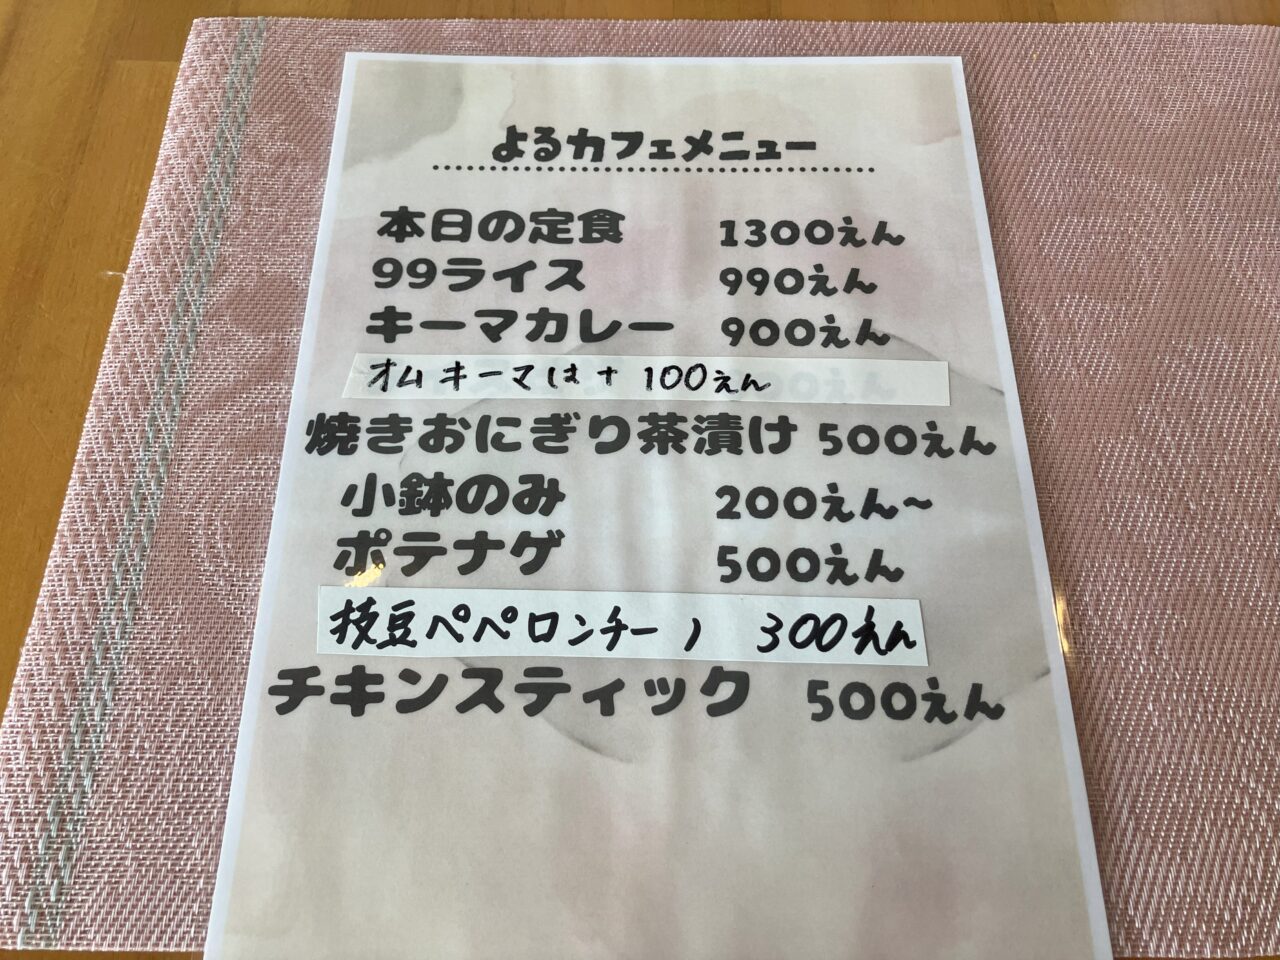 よるカフェメニュー
本日の定食 1300えん
99ライス 990えん
キーマカレー 900えん
オムキーマは+100えん
焼きおにぎり茶漬け 500えん
小鉢のみ 200えん~
ポテナゲ 500えん
枝豆ペペロンチーノ 300えん
チキンスティック 500えん